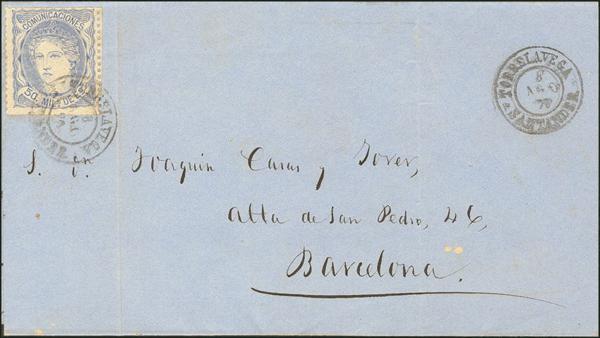 COMUNICACIONES
50 MILS DE E.
TORRELAVEGA
8
AGO
70
* SANTANDER *
S. en Joaquin Casas y Jover,
alta de San Pedro, 46,
Barcelona.